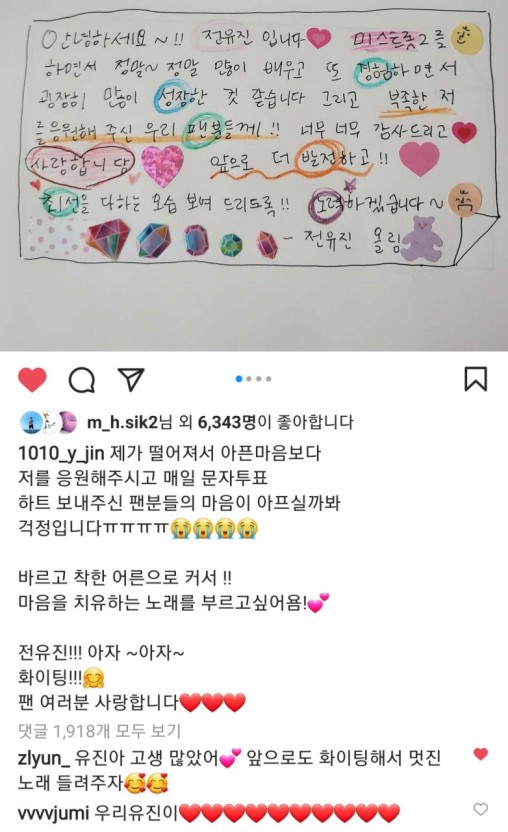 안녕하세요~!! 전유진 입니다 미스트롯2를
하면서 정말~ 정말 많이 배우고 또 경험하면서
굉장히 많이 성장한 것 같습니다 그리고 부족한 저
를 응원해 주신 우리 팬분들께!! 너무 너무 감사드리고
사랑합니당 앞으로 더 발전하고!!
최선을 다하는 모습 보여 드리도록!! 노력하겠습니다~
- 전유진 올림
m_h.sik2님 외 6,343명이 좋아합니다
1010_y_jin 제가 떨어져서 아픈마음보다
저를 응원해주시고 매일 문자투표
하트 보내주신 팬분들의 마음이 아프실까봐
걱정입니다ㅠㅠㅠㅠ😭😭😭😭
바르고 착한 어른으로 커서 !!
마음을 치유하는 노래를 부르고싶어욤!💕
전유진!!! 아자 ~아자~
화이팅!!!🤗
팬 여러분 사랑합니다❤️❤️❤️
댓글 1,918개 모두 보기
zlyun_ 유진아 고생 많았어💕 앞으로도 화이팅해서 멋진
노래 들려주자🥰🥰
vvvvjumi 우리유진이❤️❤️❤️❤️❤️❤️❤️❤️❤️❤️